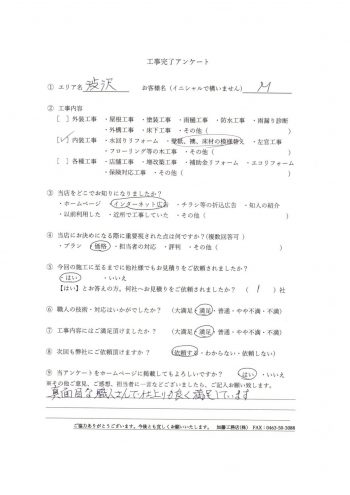 工事完了アンケート
① エリア名 渋沢 お客様名（イニシャルで構いません） M
② 工事内容
[ ] 外装工事 ・屋根工事 ・塗装工事 ・雨樋工事 ・防水工事 ・雨漏り診断
・外構工事 ・床下工事 ・その他（ ）
[✓] 内装工事 ・水回りリフォーム ・壁紙、襖、床材の模様替え ・左官工事
・フローリング等の木工事 ・その他（ ）
[ ] 各種工事 ・店舗工事 ・増改築工事 ・補助金リフォーム ・エコリフォーム
・保険対応工事 ・その他（ ）
③ 当店をどこでお知りになりましたか？
・ホームページ ・インターネット広告 ・チラシ等の折込広告 ・知人の紹介
・以前利用した ・近所で工事していた ・その他（ ）
④ 当店にお決めになる際に重要視された点は何ですか？（複数回答可）
・プラン ・価格 ・担当者の対応 ・評判 ・その他（ ）
⑤ 今回の施工に至るまでに他社様でもお見積りをご依頼されましたか？
・はい ・いいえ
【はい】とお答えの方。何社へお見積りをご依頼されましたか？ （ 1 ）社
⑥ 職人の技術・対応はいかがでしたか？ （大満足・満足・普通・やや不満・不満）
⑦ 工事内容にはご満足頂けましたか？ （大満足・満足・普通・やや不満・不満）
⑧ 次回も弊社にご依頼頂けますか？ （依頼する・わからない・依頼しない）
⑨ 当アンケートをホームページに掲載してもよろしいですか？ （はい・いいえ）
※その他ご意見、ご感想、担当者に一言などございましたら、ご記入お願い致します。
真面目な職人さんで仕上りも良く満足しています
ご協力ありがとうございます。今後とも宜しくお願いいたします。 加藤工務店(株) FAX：0463-59-3088